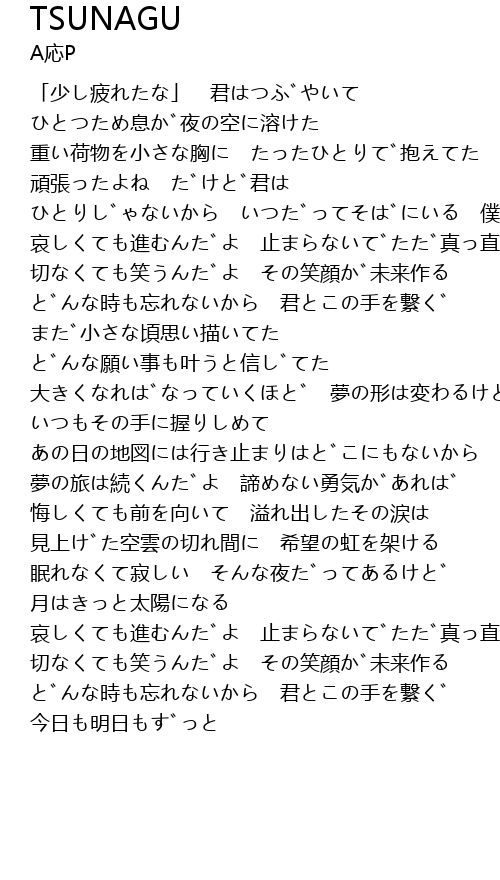 TSUNAGU
A応P
「少し疲れたな」　君はつぶやいて
ひとつため息が夜の空に溶けた
重い荷物を小さな胸に　たったひとりで抱えてた
頑張ったよね　だけど君は
ひとりじゃないから　いつだってそばにいる　僕
哀しくても進むんだよ　止まらないでただ真っ直
切なくても笑うんだよ　その笑顔が未来作る
どんな時も忘れないから　君とこの手を繋ぐ
まだ小さな頃思い描いてた
どんな願い事も叶うと信じてた
大きくなればなっていくほど　夢の形は変わるけど
いつもその手に握りしめて
あの日の地図には行き止まりはどこにもないから
夢の旅は続くんだよ　諦めない勇気があれば
悔しくても前を向いて　溢れ出したその涙は
見上げた空雲の切れ間に　希望の虹を架ける
眠れなくて寂しい　そんな夜だってあるけど
月はきっと太陽になる
哀しくても進むんだよ　止まらないでただ真っ直
切なくても笑うんだよ　その笑顔が未来作る
どんな時も忘れないから　君とこの手を繋ぐ
今日も明日もずっと